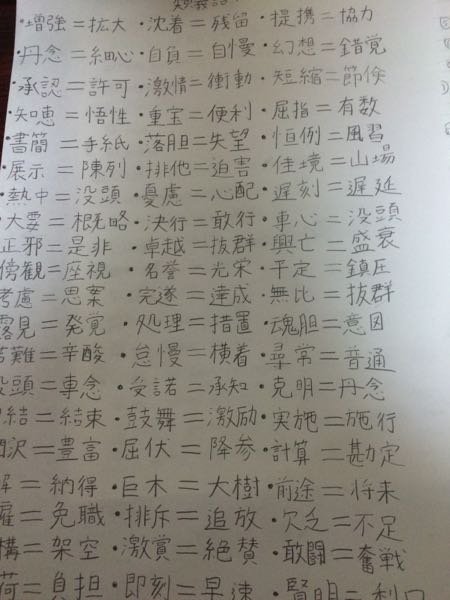 類義語
・増強＝拡大 ・沈着＝残留 ・提携＝協力
・丹念＝細心 ・自負＝自慢 ・幻想＝錯覚
・承認＝許可 ・激情＝衝動 ・短縮＝節倹
・知恵＝悟性 ・重宝＝便利 ・屈指＝有数
・書簡＝手紙 ・落胆＝失望 ・恒例＝風習
・展示＝陳列 ・排他＝迫害 ・佳境＝山場
・熱中＝没頭 ・憂慮＝心配 ・遅刻＝遅延
大要＝概略 ・決行＝敢行 ・専心＝没頭
正邪＝是非 ・卓越＝抜群 ・興亡＝盛衰
傍観＝座視 ・名誉＝光栄 ・平定＝鎮圧
考慮＝思案 ・完遂＝達成 ・無比＝抜群
露見＝発覚 ・処理＝措置 ・魂胆＝意図
苦難＝辛酸 ・怠慢＝横着 ・尋常＝普通
没頭＝専念 ・受諾＝承知 ・克明＝丹念
結＝結束 ・鼓舞＝激励 ・実施＝施行
沢＝豊富 ・屈伏＝降参 ・計算＝勘定
＝納得 ・巨木＝大樹 ・前途＝将来
雇＝免職 ・排斥＝追放 ・欠乏＝不足
構＝架空 ・激賞＝絶賛 ・敢闘＝奮戦
荷＝負担 ・即刻＝早速 ・賢明＝利口